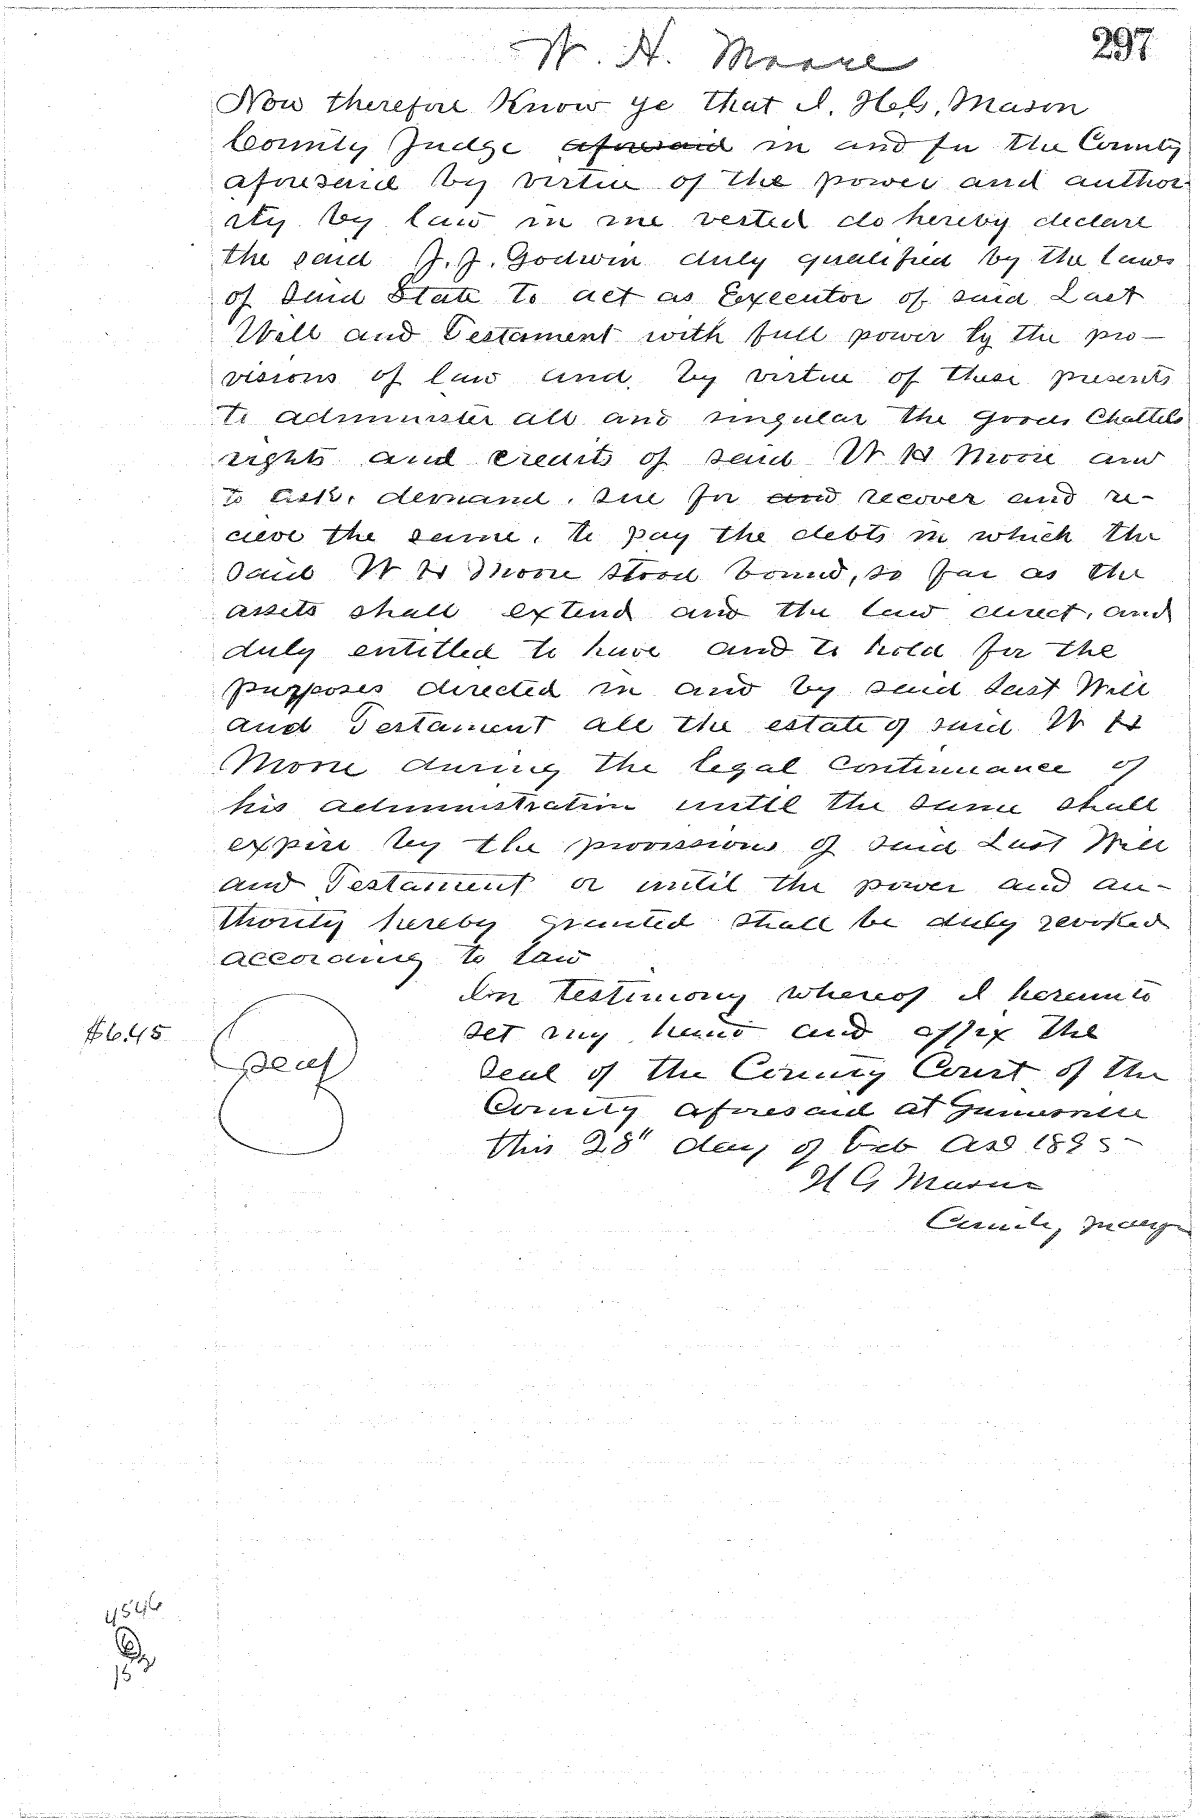 297
W. H. Moore
Now therefore Know ye that I, H. G. Mason
County Judge aforesaid in and for the County
aforesaid by virtue of the power and author-
ity by law in me vested do hereby declare
the said J. J. Godwin duly qualified by the laws
of said State to act as Executor of said Last
Will and Testament with full power by the pro-
visions of law and by virtue of these presents
to administer all and singular the goods Chattels
rights and credits of said W H Moore and
to ask, demand, sue for and recover and re-
cieve the same, to pay the debts in which the
said W H Moore stood bound, so far as the
assets shall extend and the law direct, and
duly entitled to have and to hold for the
purposes directed in and by said Last Will
and Testament all the estate of said W H
Moore during the legal continuance of
his administration until the same shall
expire by the provissions of said Last Will
and Testament or until the power and au-
thority hereby granted shall be duly revoked
according to law
In testimony whereof I hereunto
$6.45
set my hand and affix the
seal
seal of the County Court of the
County aforesaid at Gainesville
this 28" day of Feb AD 1895
H G Mason
County Judge
4546
15